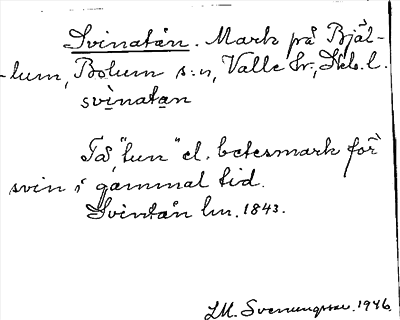 Svinatån. Mark på Bjäl-
-lum, Bolum s:n, Valle hr., Skbs. l.
svìnatạn
Tå, "tun" el. betesmark för
svin i gammal tid.
Svintån lm. 1843.
LM. Svenungsson. 1946.